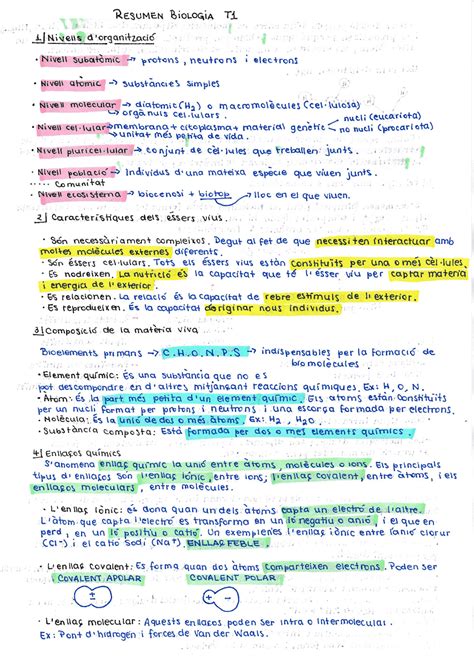 RESUMEN BIOLOGIA T1
1/ Nivells d'organització
· Nivell subatòmic → protons, neutrons i electrons
· Nivell atòmic → substàncies simples
· Nivell molecular → diatòmic (H2) o macromolècules (cel·lulosa)
→ orgànuls cel·lulars
nucli (eucariota)
· Nivell cel·lular → membrana + citoplasma + material genètic
no nucli (procariota)
→ unitat més petita de vida.
· Nivell pluricel·lular → conjunt de cèl·lules que treballen junts.
· Nivell població → Individus d'una mateixa espècie que viuen junts.
... Comunitat
· Nivell ecosistema → biocenosi + biotop → lloc en el que viuen.
2/ Característiques dels éssers vius.
· Són necessàriament complexos. Degut al fet de que necessiten interactuar amb
moltes molècules externes diferents.
· Són éssers cel·lulars. Tots els éssers vius están constituïts per una o més cèl·lules.
· Es nodreixen. La nutrició és la capacitat que té l'ésser viu per captar matèria
i energia de l'exterior.
· Es relacionen. La relació és la capacitat de rebre estímuls de l'exterior.
· Es reprodueixen. És la capacitat d'originar nous individus.
3/ Composició de la matèria viva
Bioelements primaris → C.H.O.N.P.S → indispensables per la formació de
biomolècules.
· Element químic: És una substància que no es
pot descompondre en d'altres mitjansant reaccions químiques. Ex: H, O, N.
· Àtom: És la part més petita d'un element químic. Els àtoms están constituïts
per un nucli format per protons i neutrons i una escorça formada per electrons.
· Molècula: És la unió de dos o més àtoms. Ex: H2, H2O.
· Substància composta: Està formada per dos o més elements químics.
4/ Enllaços químics
S'anomena enllaç químic la unió entre àtoms, molècules o ions. Els principals
tipus d'enllaços són l'enllaç iònic, entre ions; l'enllaç covalent, entre àtoms, i els
enllaços moleculars, entre molècules.
· L'enllaç iònic: és dona quan un dels àtoms capta un electró de l'altre.
L'àtom que capta l'electró es transforma en un ió negatiu o anió, i el que en
perd, en un ió positiu o catió. Un exemple és l'enllaç iònic entre l'anió clorur
(Cl-) i el catió sodi (Na+). ENLLAÇ FEBLE.
· L'enllaç covalent: Es forma quan dos àtoms comparteixen electrons. Poden ser
COVALENT APOLAR COVALENT POLAR
± + -
· L'enllaç molecular: Aquests enllaços poden ser intra o intermolecular.
Ex: Pont d'hidrogen i forces de Van der Waals.